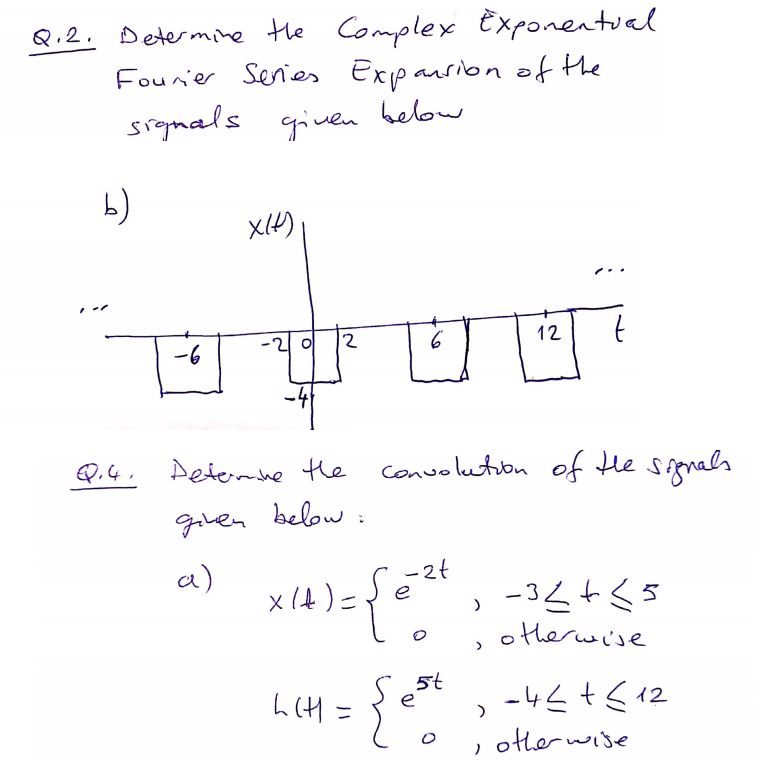 Q.2. Determine the Complex Exponentual
Fourier Series Expansion of the
signals given below
b)
x(t)
... ...
-6 -2 0 2 6 12 t
-4
Q.4. Determine the convolution of the signals
given below:
a)
x(t) = { e^-2t , -3 ≤ t ≤ 5
0 , otherwise
h(t) = { e^5t , -4 ≤ t ≤ 12
0 , otherwise